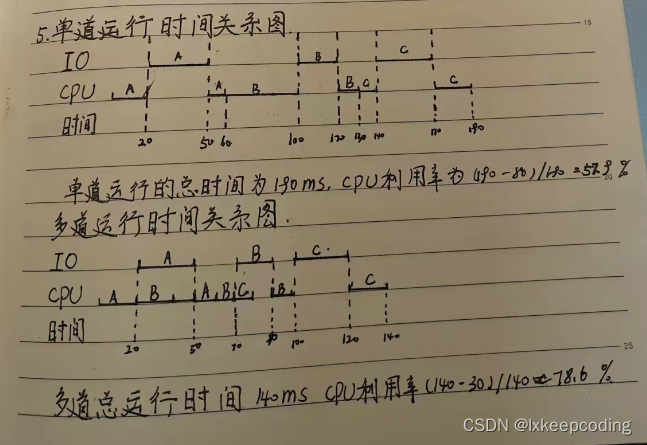 15
5.单道运行时间关系图.
IO A B C
CPU A A B B C C
时间 20 50 60 100 120 130 140 170 190
单道运行的总时间为190ms, CPU利用率为(190-80)/190=57.9%
多道运行时间关系图.
IO A B C
CPU A B A B C B C
时间 20 50 70 90 100 120 140
25
多道总运行时间 140ms CPU利用率(140-30)/140≈78.6%
CSDN @lxkeepcoding